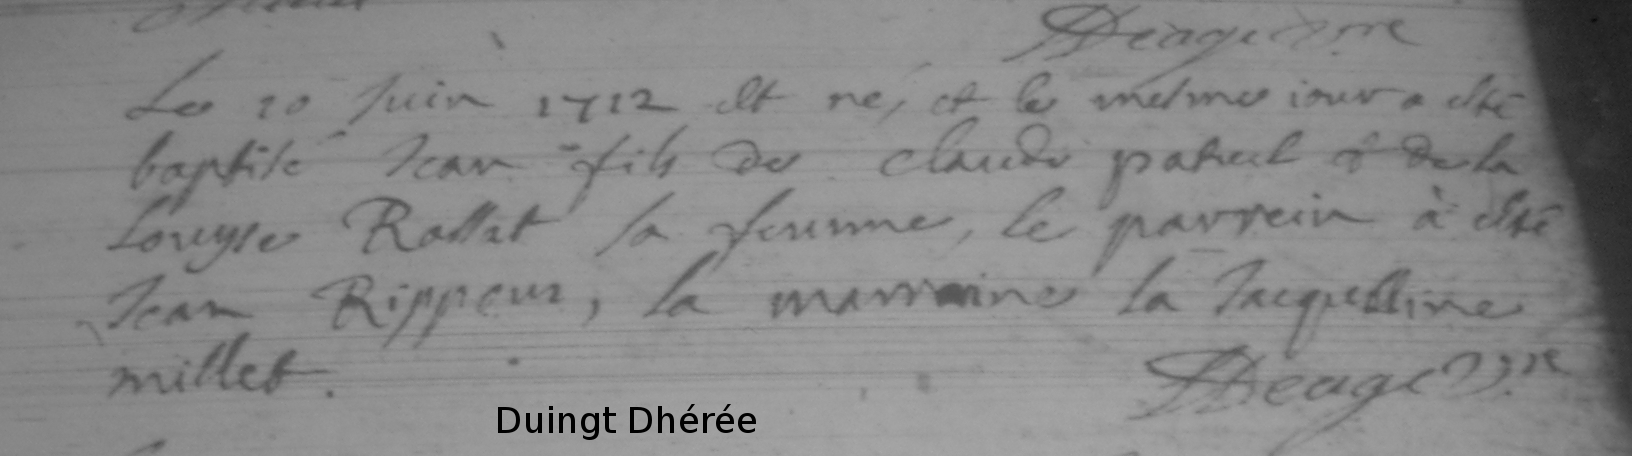 Le 20 Juin 1712 est né, et le mesme iour a esté
baptisé Jean fils de Claude patuel & de la
Louyse Rollat sa femme, le parrein à esté
Jean Rippeur, la marraine la Jacquelline
millet.
Duingt Dhérée